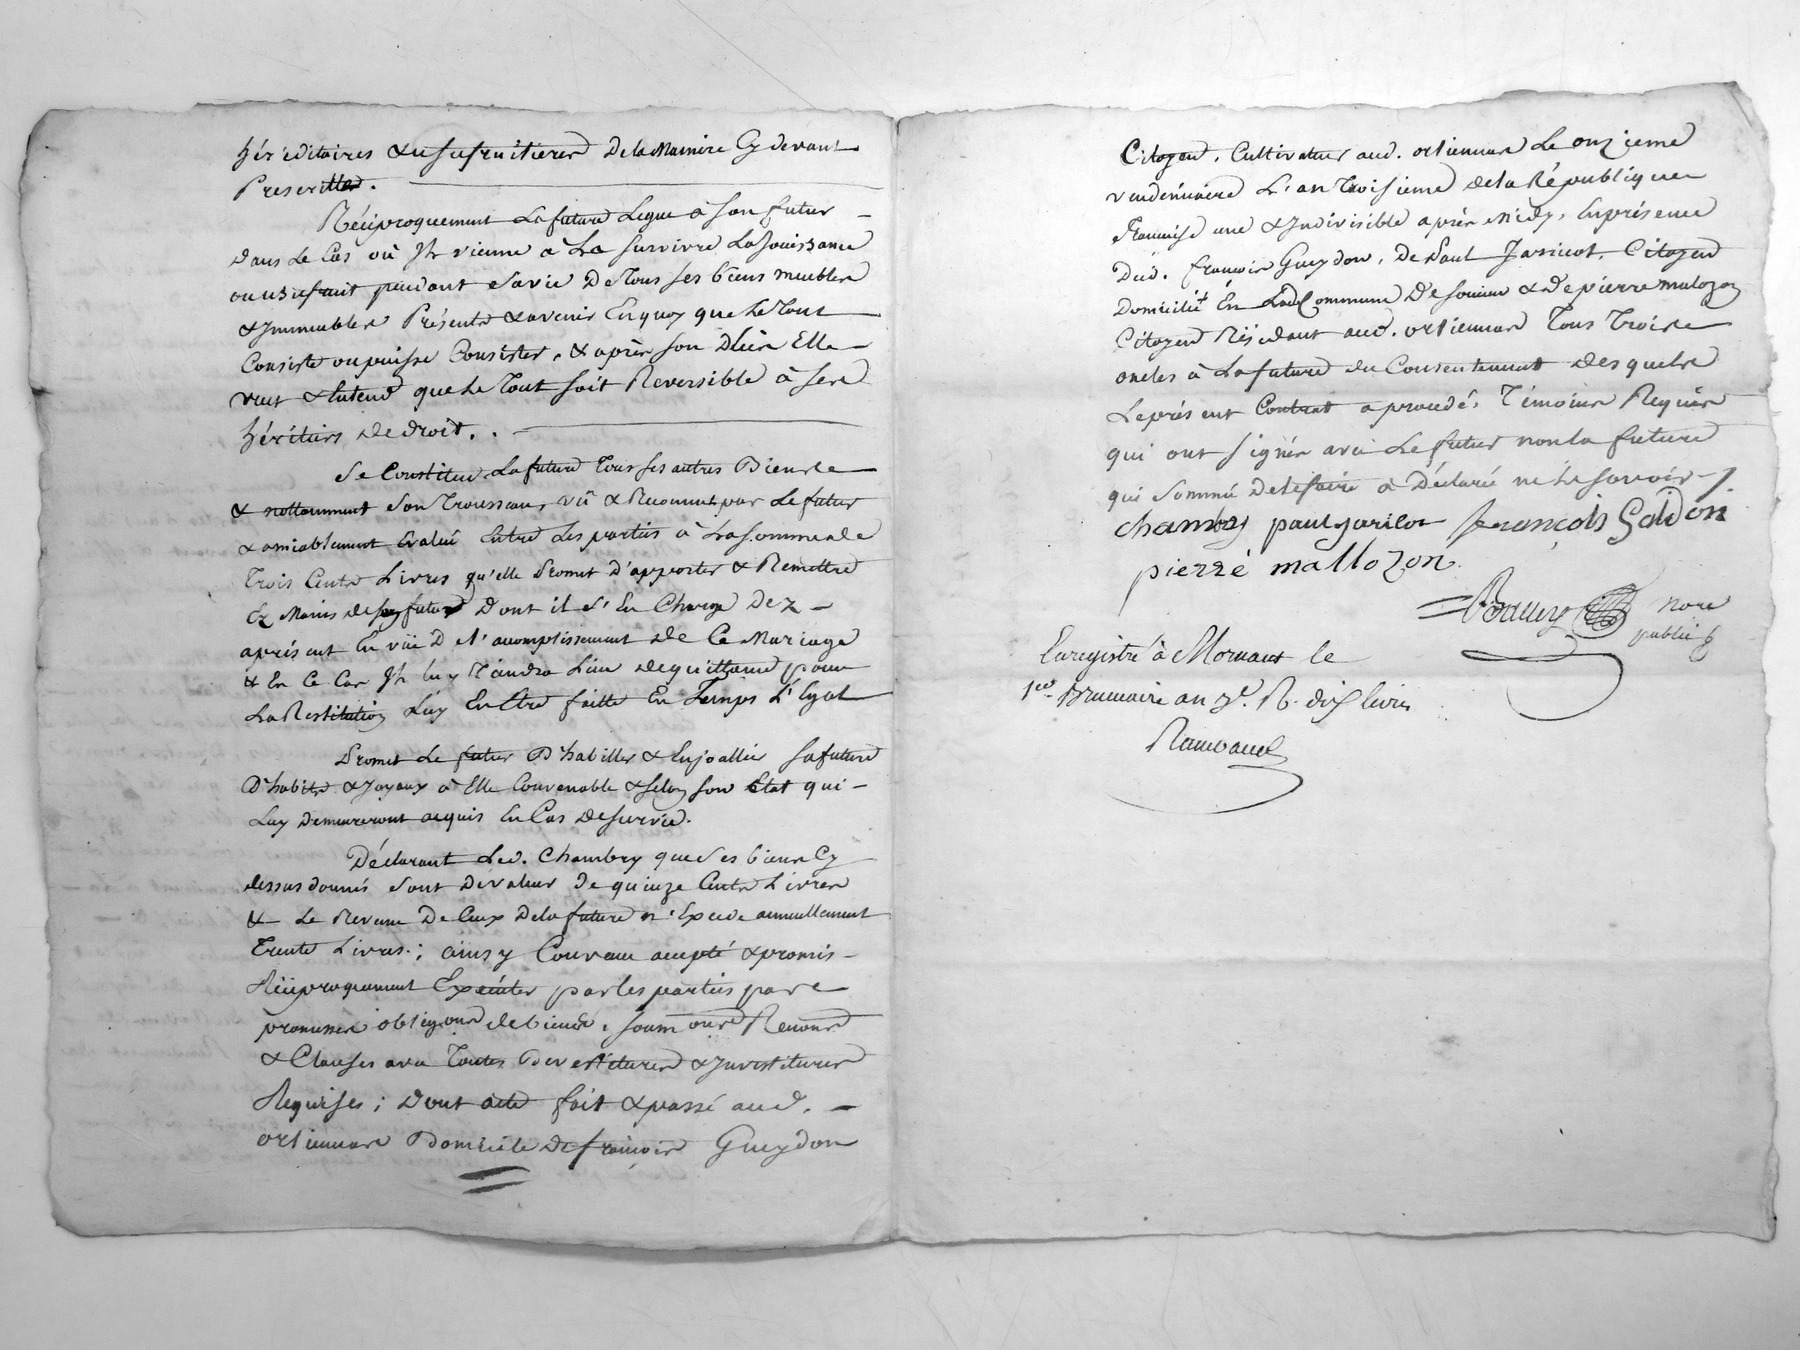 héréditaires & usufruitieres De la Maniere Cy devant
Prescritte.
Réciproquement La future Legue à son futur
dans Le Cas où Il vienne à La survivre La Jouissance
ou usufruit pendant sa vie De tous ses biens meubles
& Immeubles Présents & avenir En quoy que Le tout
Consiste ou puisse Consister, & après son Décès Elle
veut & Entend que Le tout soit Reversible à ses
héritiers de droit.
Se Constitue La future tous ses autres Biens
& nottamment son trousseau, vû & Reconnu par Le futur
& amiablement Evalué Entre Les parties à La somme de
trois Cents Livres qu'elle Promet D'apporter & Remettre
Ez Mains de son futur Dont il s'En Charge Dez
aprésent En vüe De l'accomplissement de Ce Mariage
& En Ce Cas Il luy tiendra Lieu de quittance pour
La Restitution Luy En Etre faitte En temps & Lieu
Promet Le futur D'habiller & Enjoaller sa future
D'habits & Joyaux à Elle Convenable & selon son Etat qui
Luy Demeureront acquis En Cas de survie.
Déclarant Led. Chambry que ses biens Cy
dessus donnés sont De valeur De quinze Cents Livres
& Le Revenu De Ceux De la future n'Excede annuellement
trente Livres; ainsy Convenu accepté & promis
Réciproquement Executer par les parties par
promesses oblig.ons de biens, soum.ons Renon.s
& Clauses avec toutes Devestitures & Investitures
Requises; Dont acte fait & passé aud.
ortiennas Domicile de françois Gueydon
Citoyen, Cultivateur aud. ortiennas Le onzieme
vendémiaire L'an troisieme de la République
francaise une & Indivisible après Midy, En présence
Dud. françois Gueydon, De Paul Jaricot, Citoyen
Domicilié En Lad. Commune De & De pierre malozon
Citoyen Résidant aud. ortiennas tous trois
oncles à La future du Consentement desquels
Le présent Contrat a procedé, témoins Requis
qui ont signés avec Le futur non la future
qui sommé de Le faire à Déclaré ne Le savoir
chambry paul jaricot francois Gaidon
pierre mallozon
Nore
public
Enregistré à Mornant le
1er Brumaire an 3e. R. dix livres